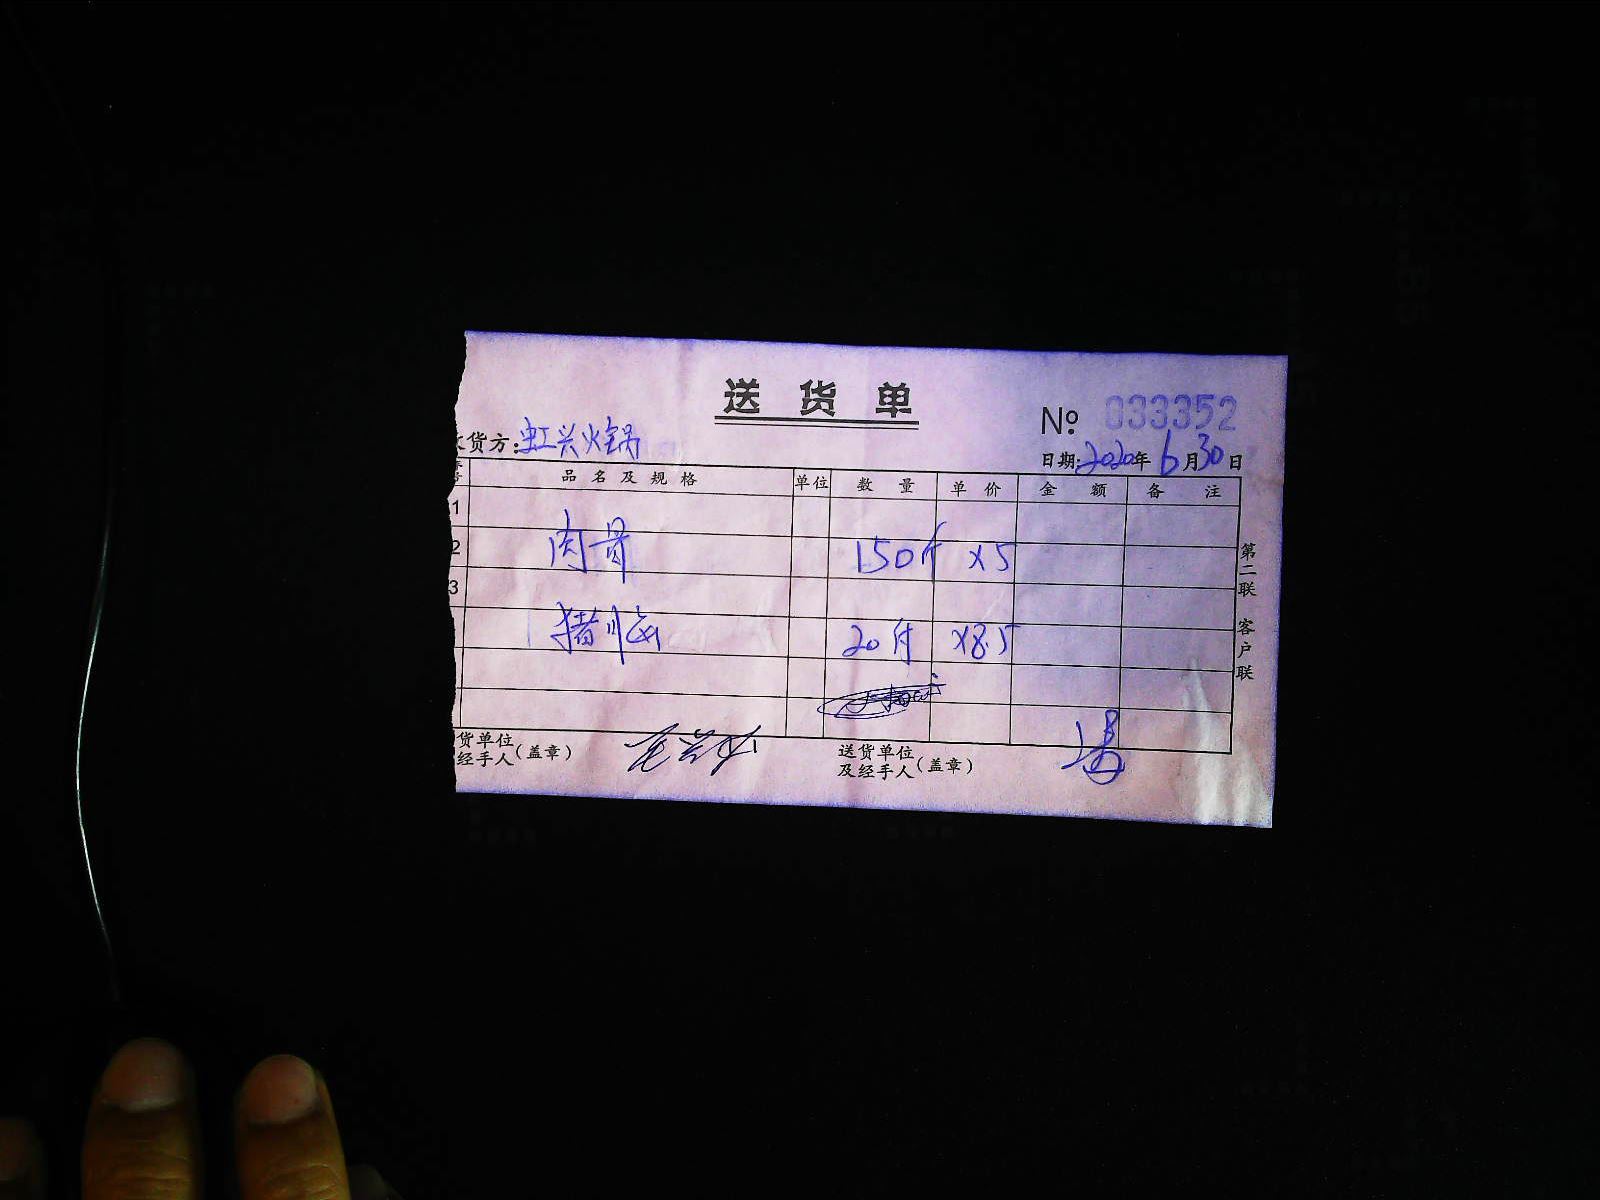 送货单
№ 033352
收货方:虹兴火锅
日期:2020年6月30日
品名及规格 单位 数量 单价 金额 备注
1
肉骨 150斤 ×5
2
3
猪 20付 ×8.5
货单位
经手人(盖章)
送货单位
及经手人(盖章)
第二联 客户联